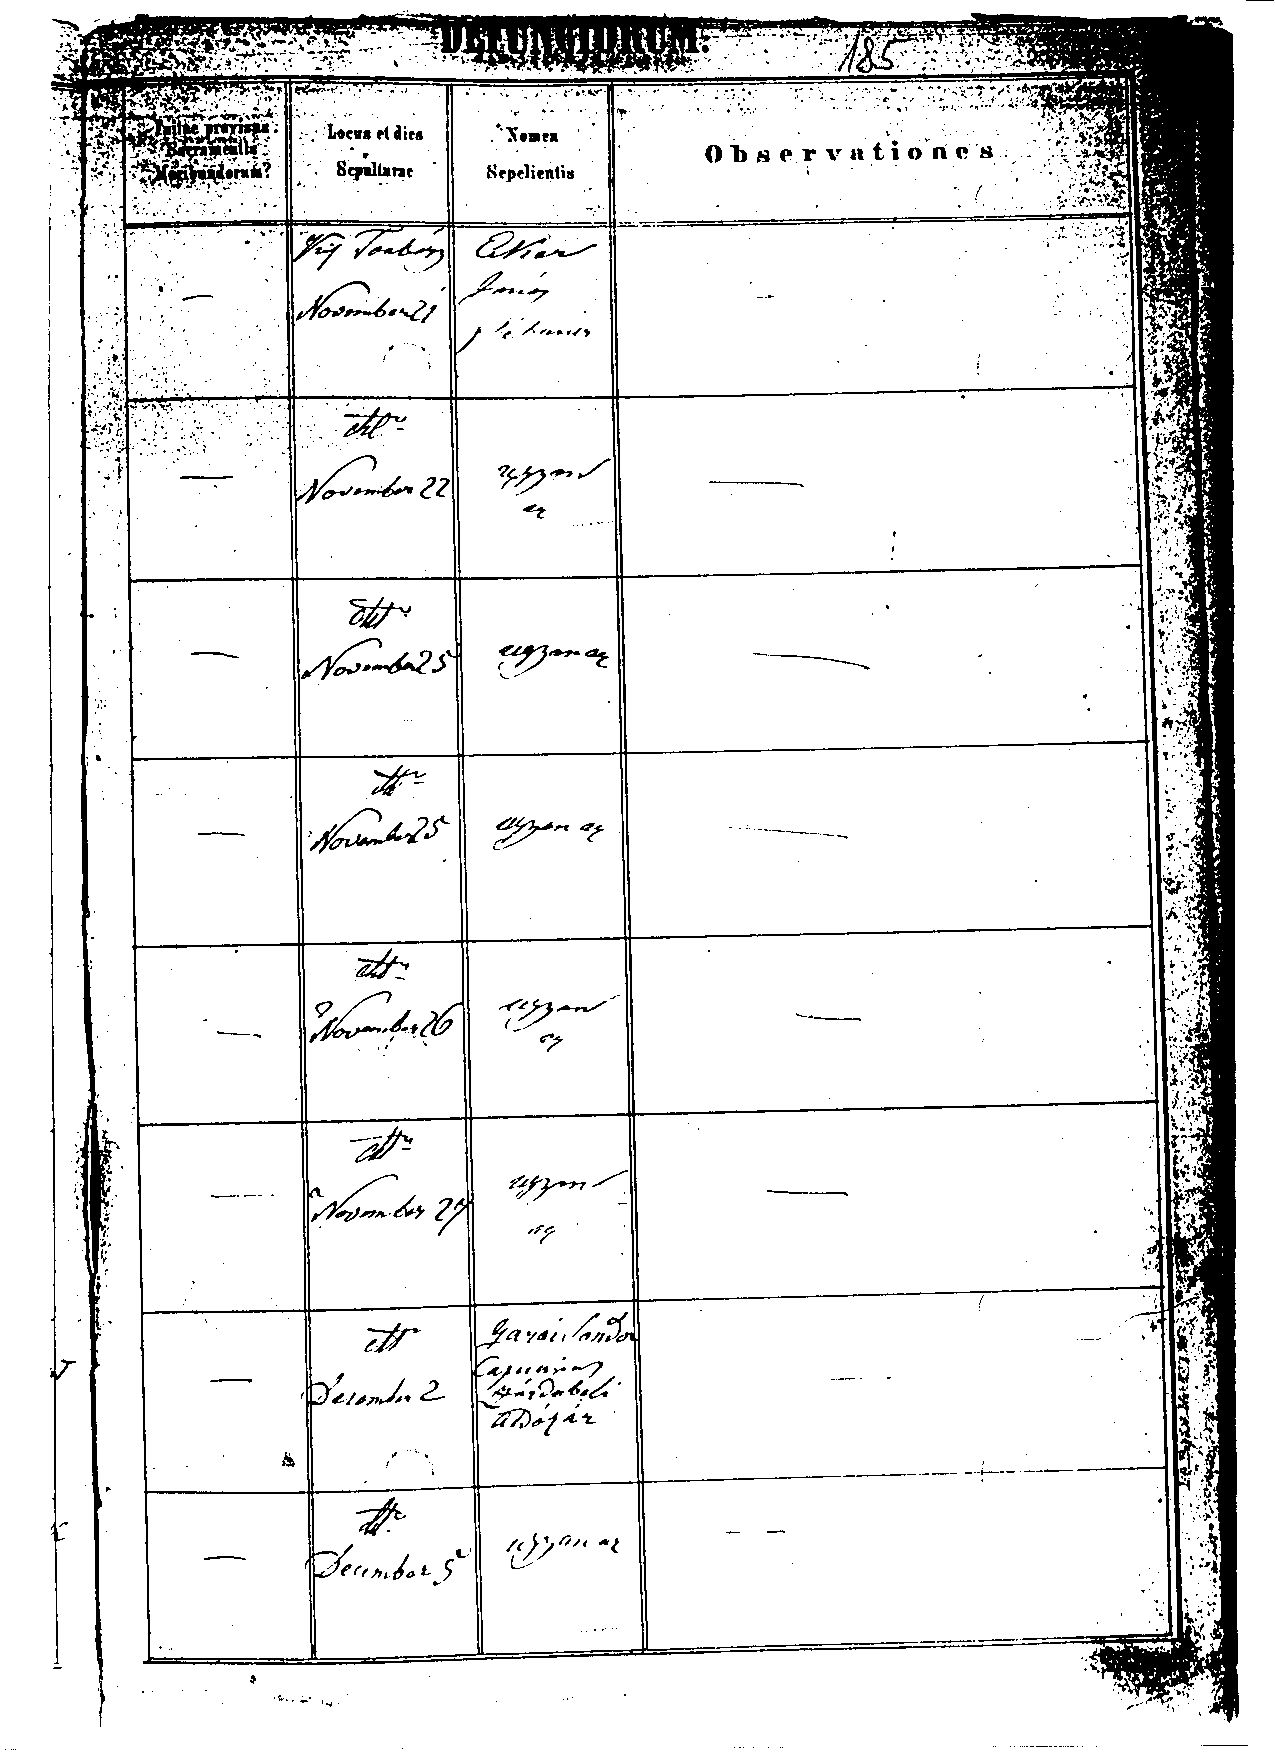 DEFUNCTORUM.
185
Fuitne provisus
Sacramentis
Moribundorum?
Locus et dies
Sepulturae
Nomen
Sepelientis
Observationes
November 21
János
plébános
dtto
November 22
ugyan
az
dtto
November 25
ugyanaz
dtto
November 25
ugyan az
dtto
November 26
ugyan
az
dtto
November 27
ugyan
az
dtto
December 2
Sándor
dtto
December 5
ugyan az